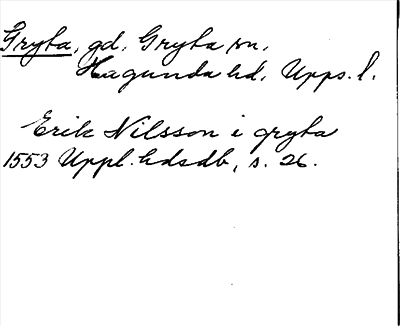 Gryta, gd. Gryta sn.
Hagunda hd. Upps. l.
Erik Nilsson i gryta
1553 Uppl. hdsdb, s. 26.